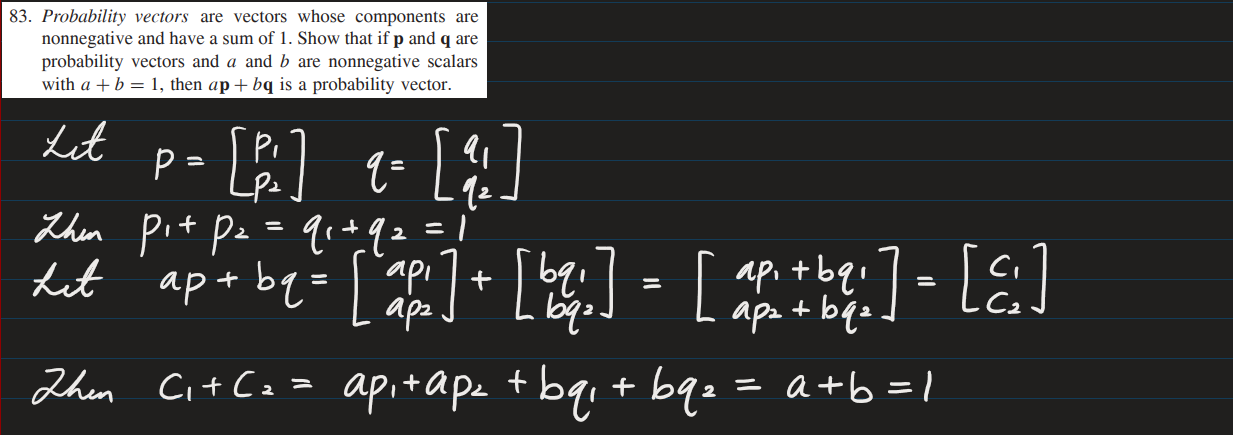 83. Probability vectors are vectors whose components are
nonnegative and have a sum of 1. Show that if p and q are
probability vectors and a and b are nonnegative scalars
with a + b = 1, then ap + bq is a probability vector.
Let p = [p₁ p₂] q = [q₁ q₂]
Then p₁ + p₂ = q₁ + q₂ = 1
Let ap + bq = [ap₁ ap₂] + [bq₁ bq₂] = [ap₁ + bq₁ ap₂ + bq₂] = [c₁ c₂]
Then c₁ + c₂ = ap₁ + ap₂ + bq₁ + bq₂ = a + b = 1